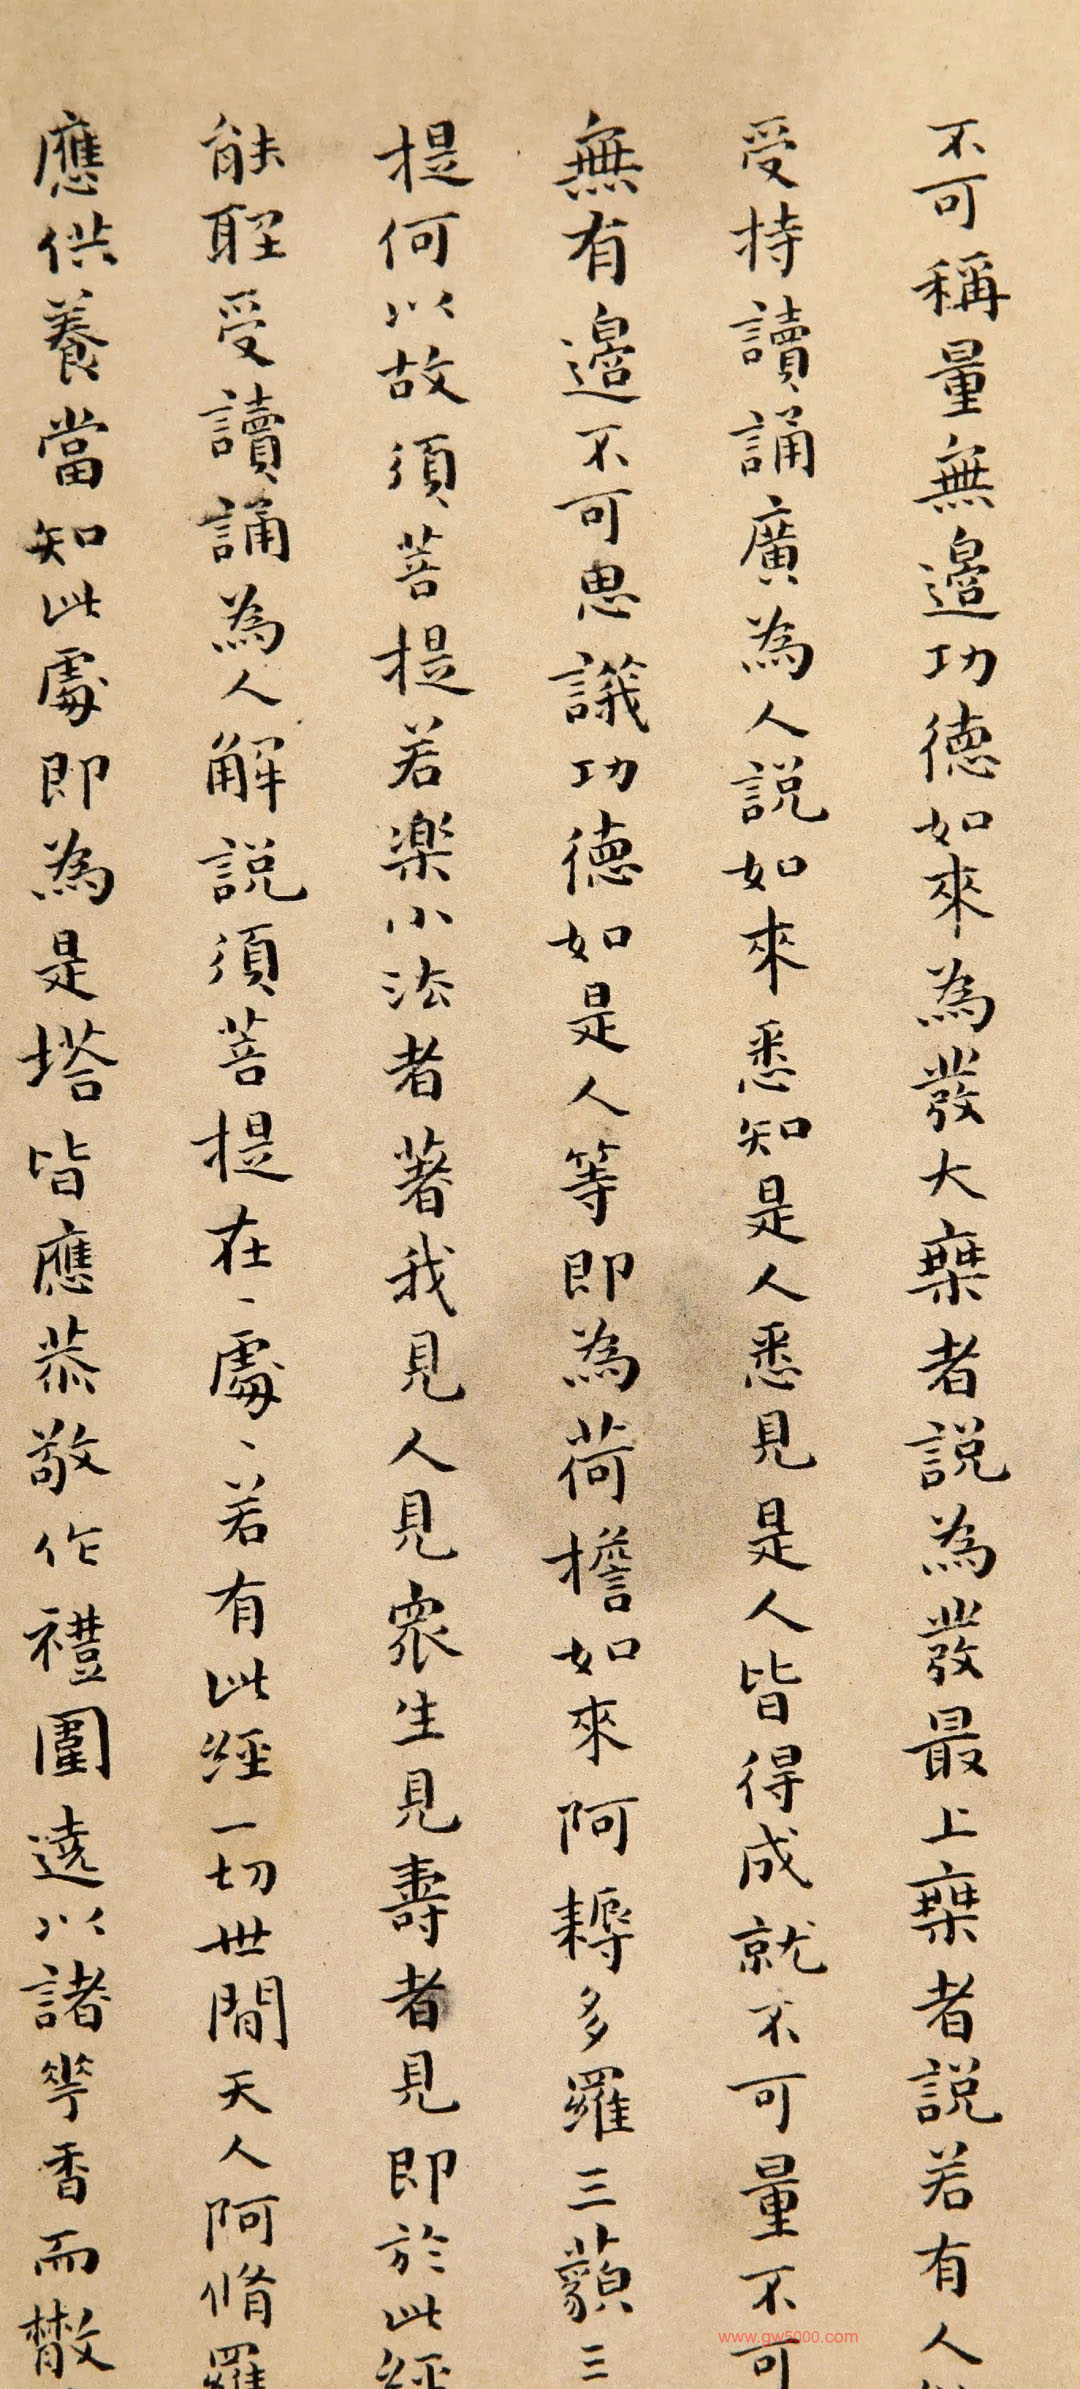 不可稱量無邊功德如來為發大乗者說為發最上乗者說若有人
受持讀誦廣為人說如來悉知是人悉見是人皆得成就不可量不可
無有邊不可思議功德如是人等即為荷擔如來阿耨多羅三藐三
提何以故須菩提若楽小法者著我見人見眾生見壽者見即於此經
能聽受讀誦為人解說須菩提在、處、若有此經一切世間天人阿脩羅
應供養當知此處即為是塔皆應恭敬作禮圍遶以諸華香而散
www.gw5000.com